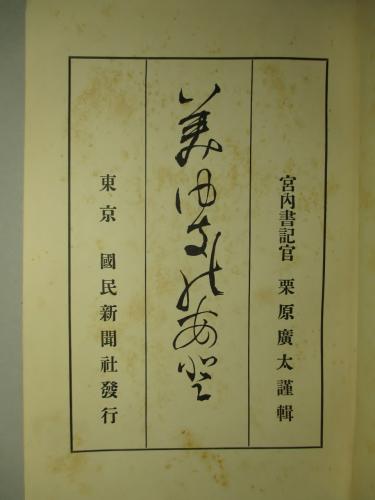 宮内書記官 栗原廣太謹輯
美由支能安登
東京 國民新聞社發行